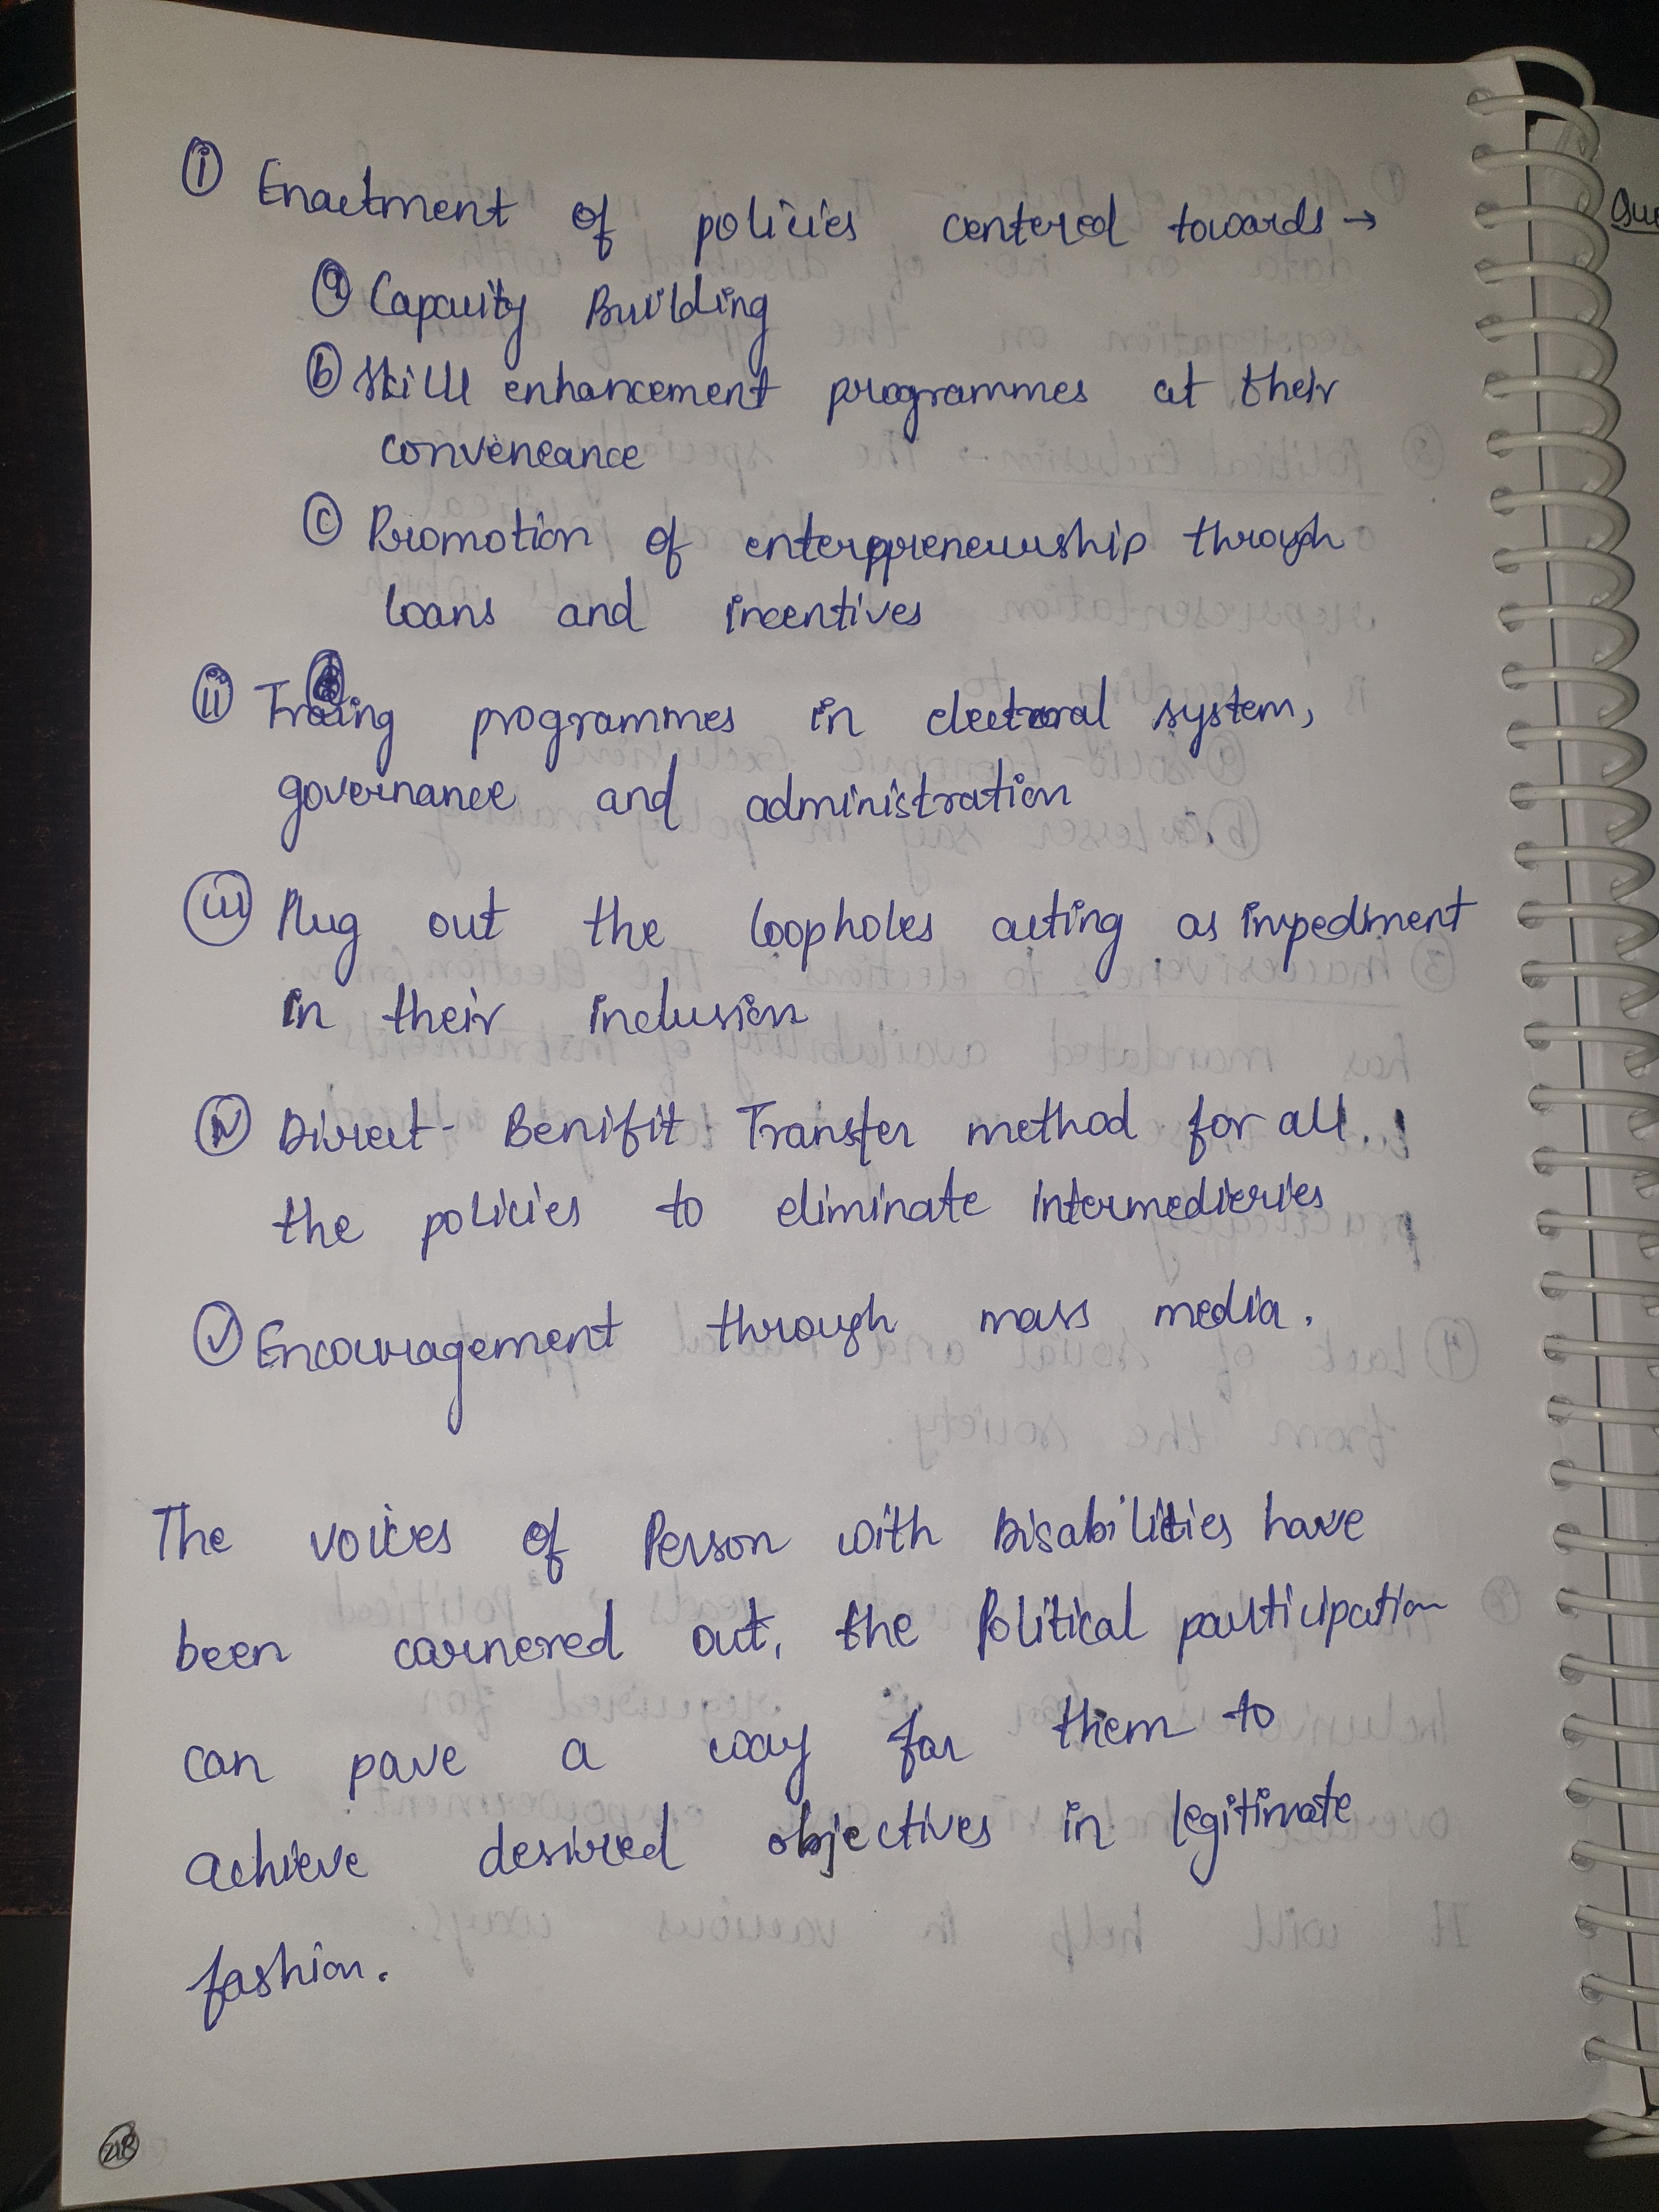 (i) Enactment of policies centered towards →
(a) Capacity Building
(b) Skill enhancement programmes at their
conveneance
(c) Promotion of enterppreneurship through
loans and incentives
(ii) Traing programmes in electoral system,
governance and administration
(iii) Plug out the loopholes acting as impediment
in their inclusion
(iv) Direct- Benifit Transfer method for all
the policies to eliminate intermedieries
(v) Encouragement through mass media.
The voices of Person with Disabilities have
been cornered out, the Political participation
can pave a way for them to
achieve desired objectives in legitimate
fashion.